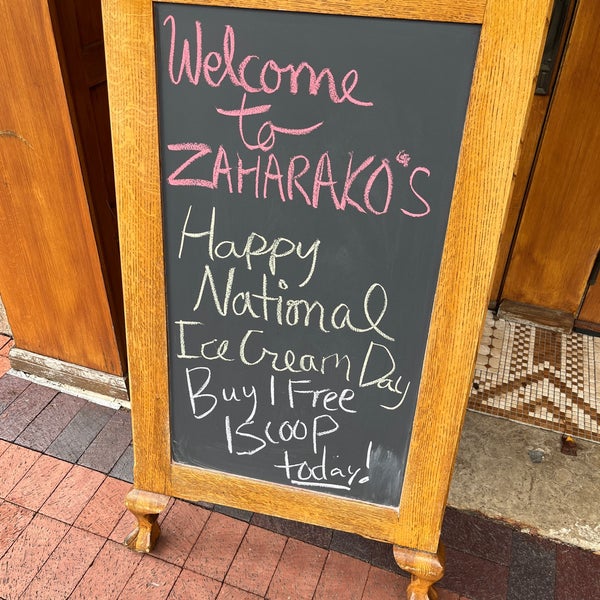 Welcome
to
ZAHARAKO'S
Happy
National
Ice Cream Day
Buy 1 Free
1 scoop
today!